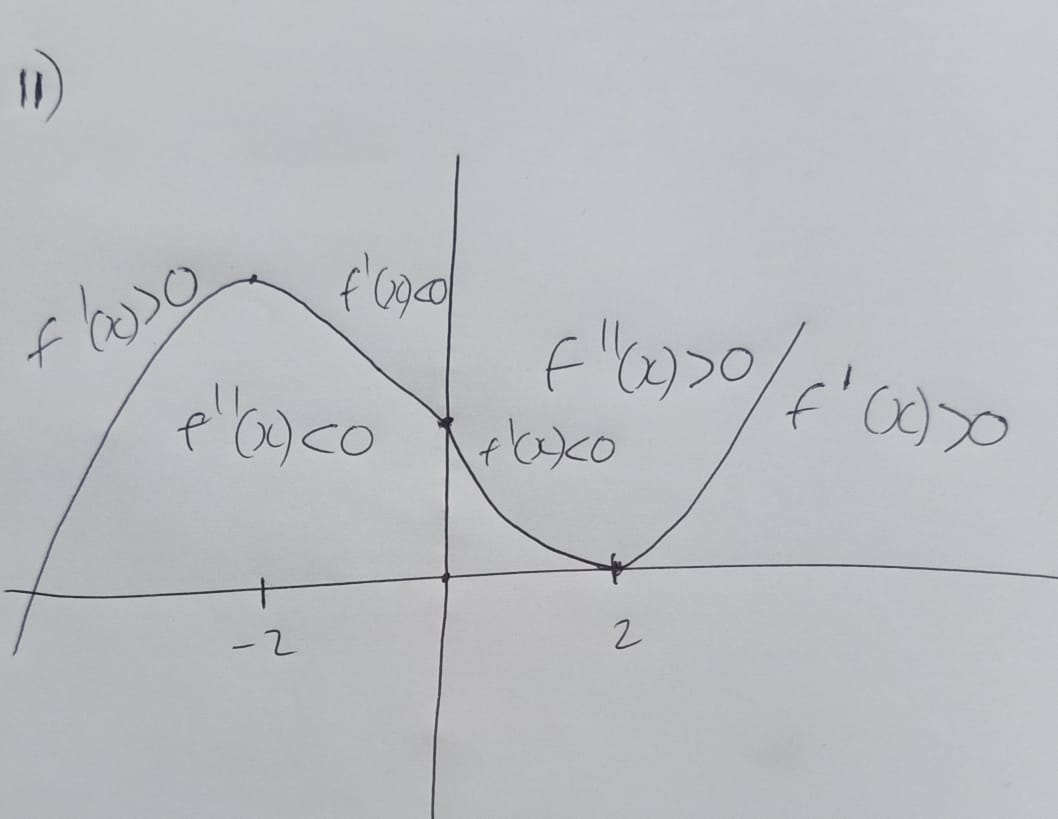 11)
f'(x)>0
f'(x)<0
f''(x)<0
f''(x)>0
f'(x)<0
f'(x)>0
-2
2